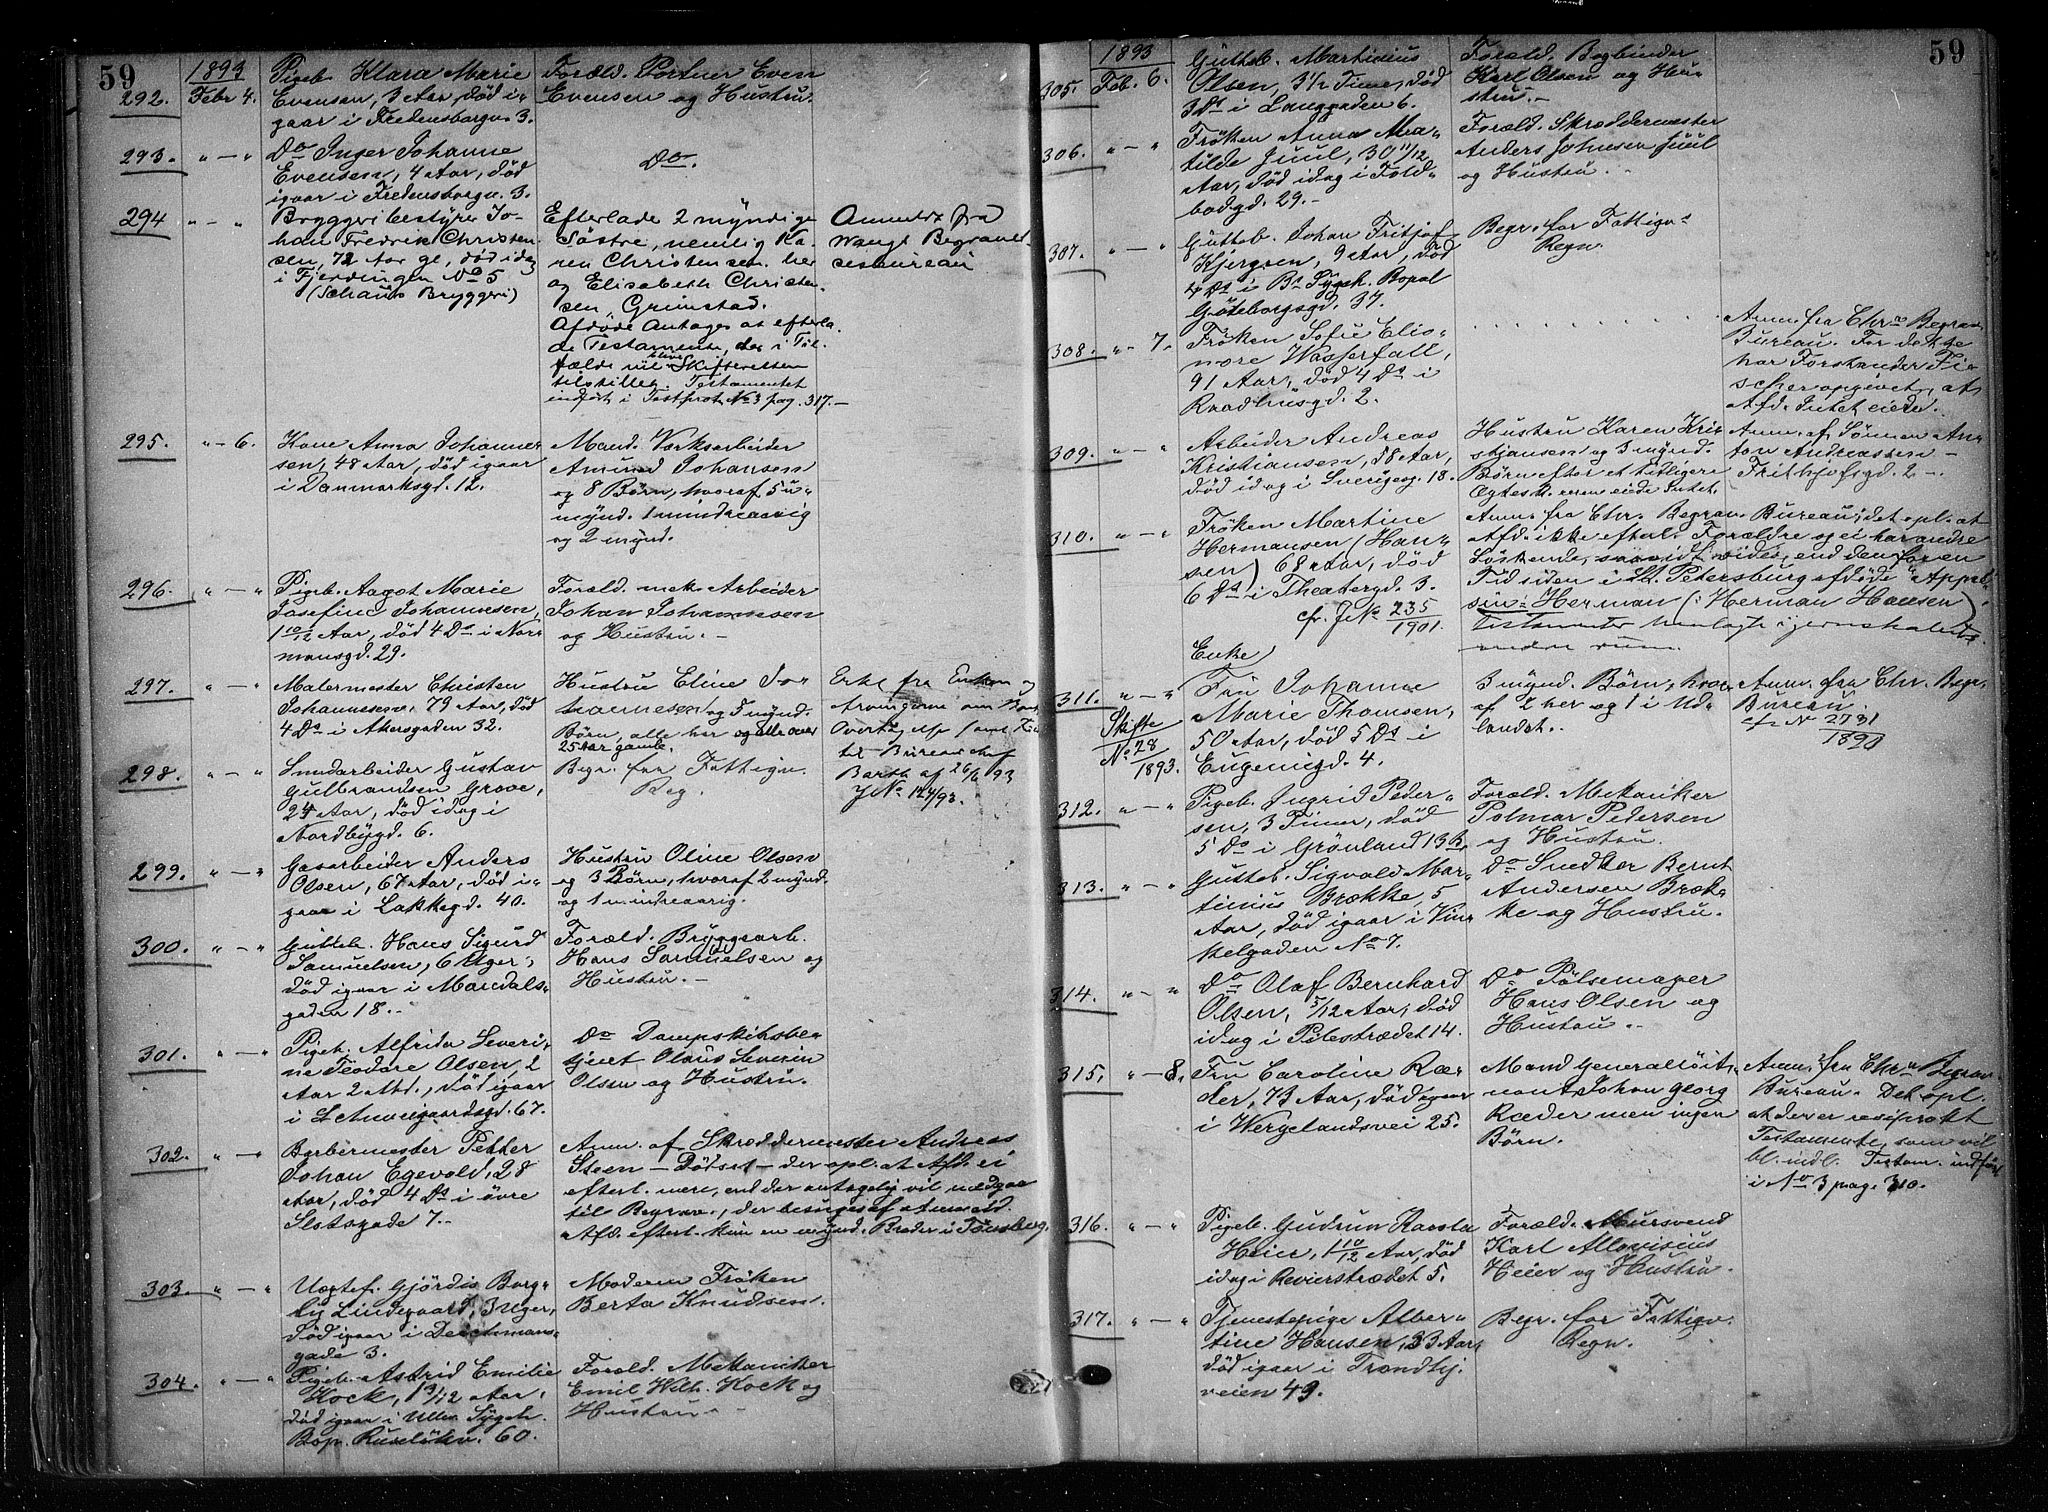 59
1893
292. Febr 4. Pigeb. Klara Marie
Evensen, 3 Aar, død i-
gaar i Fredensborgv. 3.
Foræld. Portner Even
Evensen og Hustru.
293. " — " Do Inger Johanne
Evensen, 4 Aar, død
igaar i Fredensborgv. 3.
Do.
294 " — " Bryggeribestyrer Jo-
han Fredrik Christen-
sen, 72 Aar gl., død idag
i Fjerdingen No 5
(Schous Bryggeri)
Efterlade 2 myndige
Søstre, nemlig Ka-
ren Christensen her
og Elisabeth Christen-
sen, Grimstad.
Afdøde antages at efterla-
de Testamente, der i Til-
fælde vil blive Skifteretten
tilstillet. Testamentet
indført i Testprot. No 3 pag. 317.—
Anmeldt fra
Wangs Begravel-
sesbureau
295. " — 6. Kone Anna Johanne-
sen, 48 Aar, død igaar
i Danmarksgd. 12.
Mand. Værksarbeider
Amund Johansen
og 8 Børn, hvoraf 5 u-
mynd. 1 mindreaarig
og 2 mynd.
296. " — " Pigeb. Aagot Marie
Josefine Johannesen,
1 10/12 Aar, død 4 Ds i Nor-
mansgd. 29.
Foræld. mek. Arbeider
Johan Johannesen
og Hustru. —
297. " — " Malermester Christen
Johannesen, 79 Aar, død
4 Ds i Akersgaden 32.
Hustru Eline Jo-
hannesen og 5 mynd.
Børn, alle her og alle over
25 Aar gamle.
Erkl. fra Enken og
Arvingerne om
Overtagelse samt
til Bureauchef
Barth af 26/6 93
J No 124/93.
298. " — " Smedarbeider Gustav
Gulbrandsen Grove,
24 Aar, død idag i
Nordbygd. 6.
Begr. for Fattigv.
Reg.
299. " — " Gasarbeider Anders
Olsen, 67 Aar, død i-
gaar i Lakkegd. 40.
Hustru Oline Olsen
og 3 Børn, hvoraf 2 mynd.
og 1 mindreaarig.
300. " — " Gutteb. Hans Sigurd
Samuelsen, 6 Uger,
død igaar i Mandals-
gaden 18. —
Foræld. Bryggearb.
Hans Samuelsen og
Hustru. —
301. " — " Pigeb. Alfrida Severi-
ne Teodore Olsen, 2
Aar 2 Md., død igaar
i Schweigaardsgd. 67.
Do Dampskibsbe-
tjent Olaus Severin
Olsen og Hustru.
302. " — " Barbermester Petter
Johan Egevold, 28
Aar, død 4 Ds i øvre
Slotsgade 7. —
Anm. af Skræddermester Andreas
Steen — Dødsat — der opl. at Afd. ei
efterl. mere, end der antagelig vil medgaa
til Begrav., der besørges af Anmeld.
Afd. efterl. kun en mynd. Broder i Tønsberg.
303. " — " Uægtef. Gjørdis Borg-
ly Lindegaard, 3 Uger,
død igaar i Deichmans-
gade 3.
Moderen Frøken
Berta Knudsen.
304. " — " Pigeb. Astrid Emilie
Kock, 1 9/12 Aar,
død igaar i Ullev. Sygeh.
Bop. Ruseløkv. 60.
Foræld. Mekaniker
Emil Wilh. Kock og
Hustru. —
59
1893
305. Feb. 6. Gutteb. Martinius
Olsen, 3 1/2 Time, død
3 Ds i Langgaden 6.
Foræld. Bogbinder
Karl Olsen og Hu-
stru. —
306. " — " Frøken Anna Ma-
tilde Juul, 30 11/12
Aar, død idag i Told-
bodgd. 29. —
Foræld. Skræddermester
Anders Johnsen Juul
og Hustru. —
307. " — " Gutteb. Johan Fritjof
Kjergsen, 9 Aar, død
4 Ds i Bs Sygeh. Bopæl
Gøteborgsgd. 37.
Begr. for Fattigv.s
Regn.
308. " — 7. Frøken Sofie Elio-
nore Wasserfall,
91 Aar, død 4 Ds i
Raadhusgd. 2.
Anm. fra Chr.s Begrav.
Bureau. For dette
har Forstander Fi-
scher opgivet, at
Afd. Intet eiede.
309. " — " Arbeider Andreas
Kristiansen, 58 Aar,
død idag i Sverigesg. 18.
Hustru Karen Kri-
stiansen og 3 mynd.
Børn efter et tidligere
Ægtesk. eiede Intet.
Anm. af Sønnen An-
ton Andreassen —
Frithjofsgd. 2 —.
310. " — " Frøken Martine
Hermansen (Han-
sen) 68 Aar, død
6 Ds i Theatergd. 3.
cfr. J No 235/1901.
Anm. fra Chr. Begrav. Bureau; det opl. at
Afd. ikke efterl. Forældre og ei har andre
Søskende, saavidt vides, end den for en
Tid siden i St. Petersburg afdøde "Appel-
sin-Herman" (: Herman Hansen).
Testamenter henlagte i jernskabets
nedre rum.
311. " — " Enke
Fru Johanne
Marie Thomsen,
50 Aar, død 5 Ds i
Eugeniegd. 4.
Skifte
No 28
1893.
3 mynd. Børn, hvor-
af 2 her og 1 i Ud-
landet.
Anm. fra Chr. Begr.
Bureau.
cf. N 2731
1890
312. " — " Pigeb. Ingrid Peder-
sen, 3 Timer, død
5 Ds i Grønland 13 b.
Foræld. Mekaniker
Polmar Pedersen
og Hustru.
313. " — " Gutteb. Sigvald Mar-
tinius Brække, 5
Aar, død igaar i Vin-
kelgaden No 7.
Do Snedker Bernt
Andersen Bræk-
ke og Hustru.
314. " — " Do Olaf Bernhard
Olsen, 5/12 Aar, død
idag i Pilestrædet 14.
Do Pølsemager
Hans Olsen og
Hustru. —
315. " — 8. Fru Caroline Ræ-
der, 73 Aar, død igaar
i Wergelandsvei 25.
Mand Generalløit-
nant Johan Georg
Ræder men ingen
Børn.
Anm. fra Chr.s Begrav.
Bureau. Det opl.
at der er resiprokt
Testamente, som vil
bl. indl. Testam. indført
i No 3 pag. 310.
316. " — " Pigeb. Gudrun Kaasta
Heier, 1 10/12 Aar, død
idag i Revierstrædet 5.
Foræld. Mursvend
Karl Alloysius
Heier og Hustru.
317. " — " Tjenestepige Alber-
tine Hansen, 33 Aar,
død igaar i Trondhj.
veien 49.
Begr. for Fattigv.
Regn.